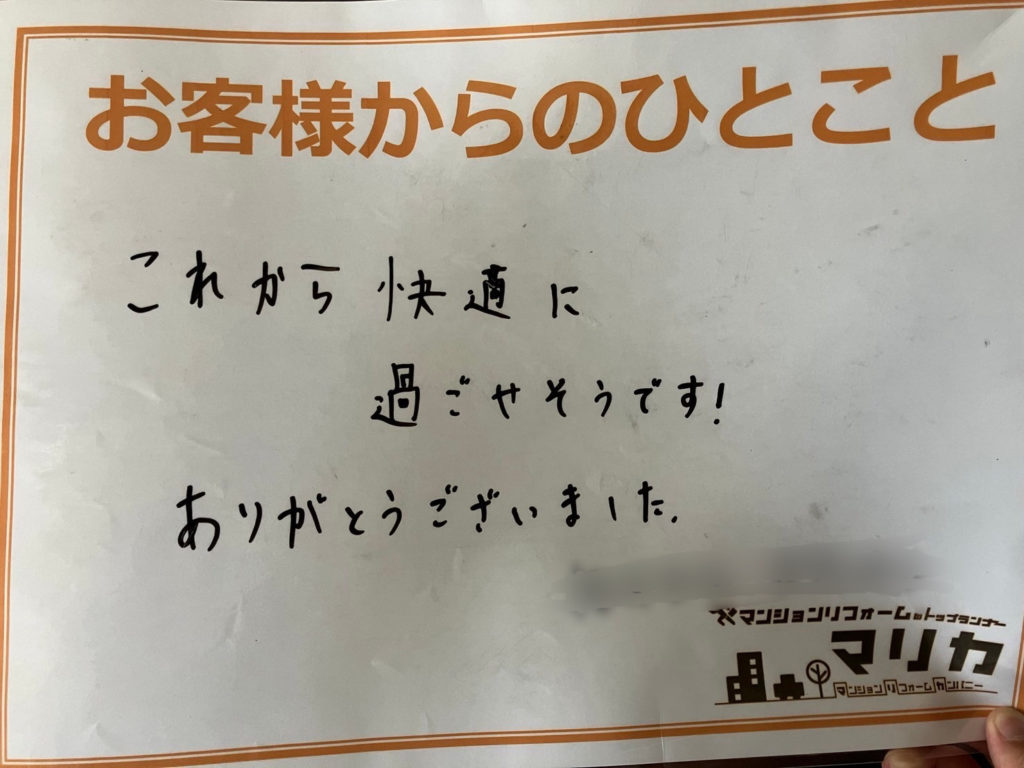 お客様からのひとこと
これから快適に
過ごせそうです!
ありがとうございました.
マンションリフォームのトップランナー
マリカ
マンションリフォームカンパニー